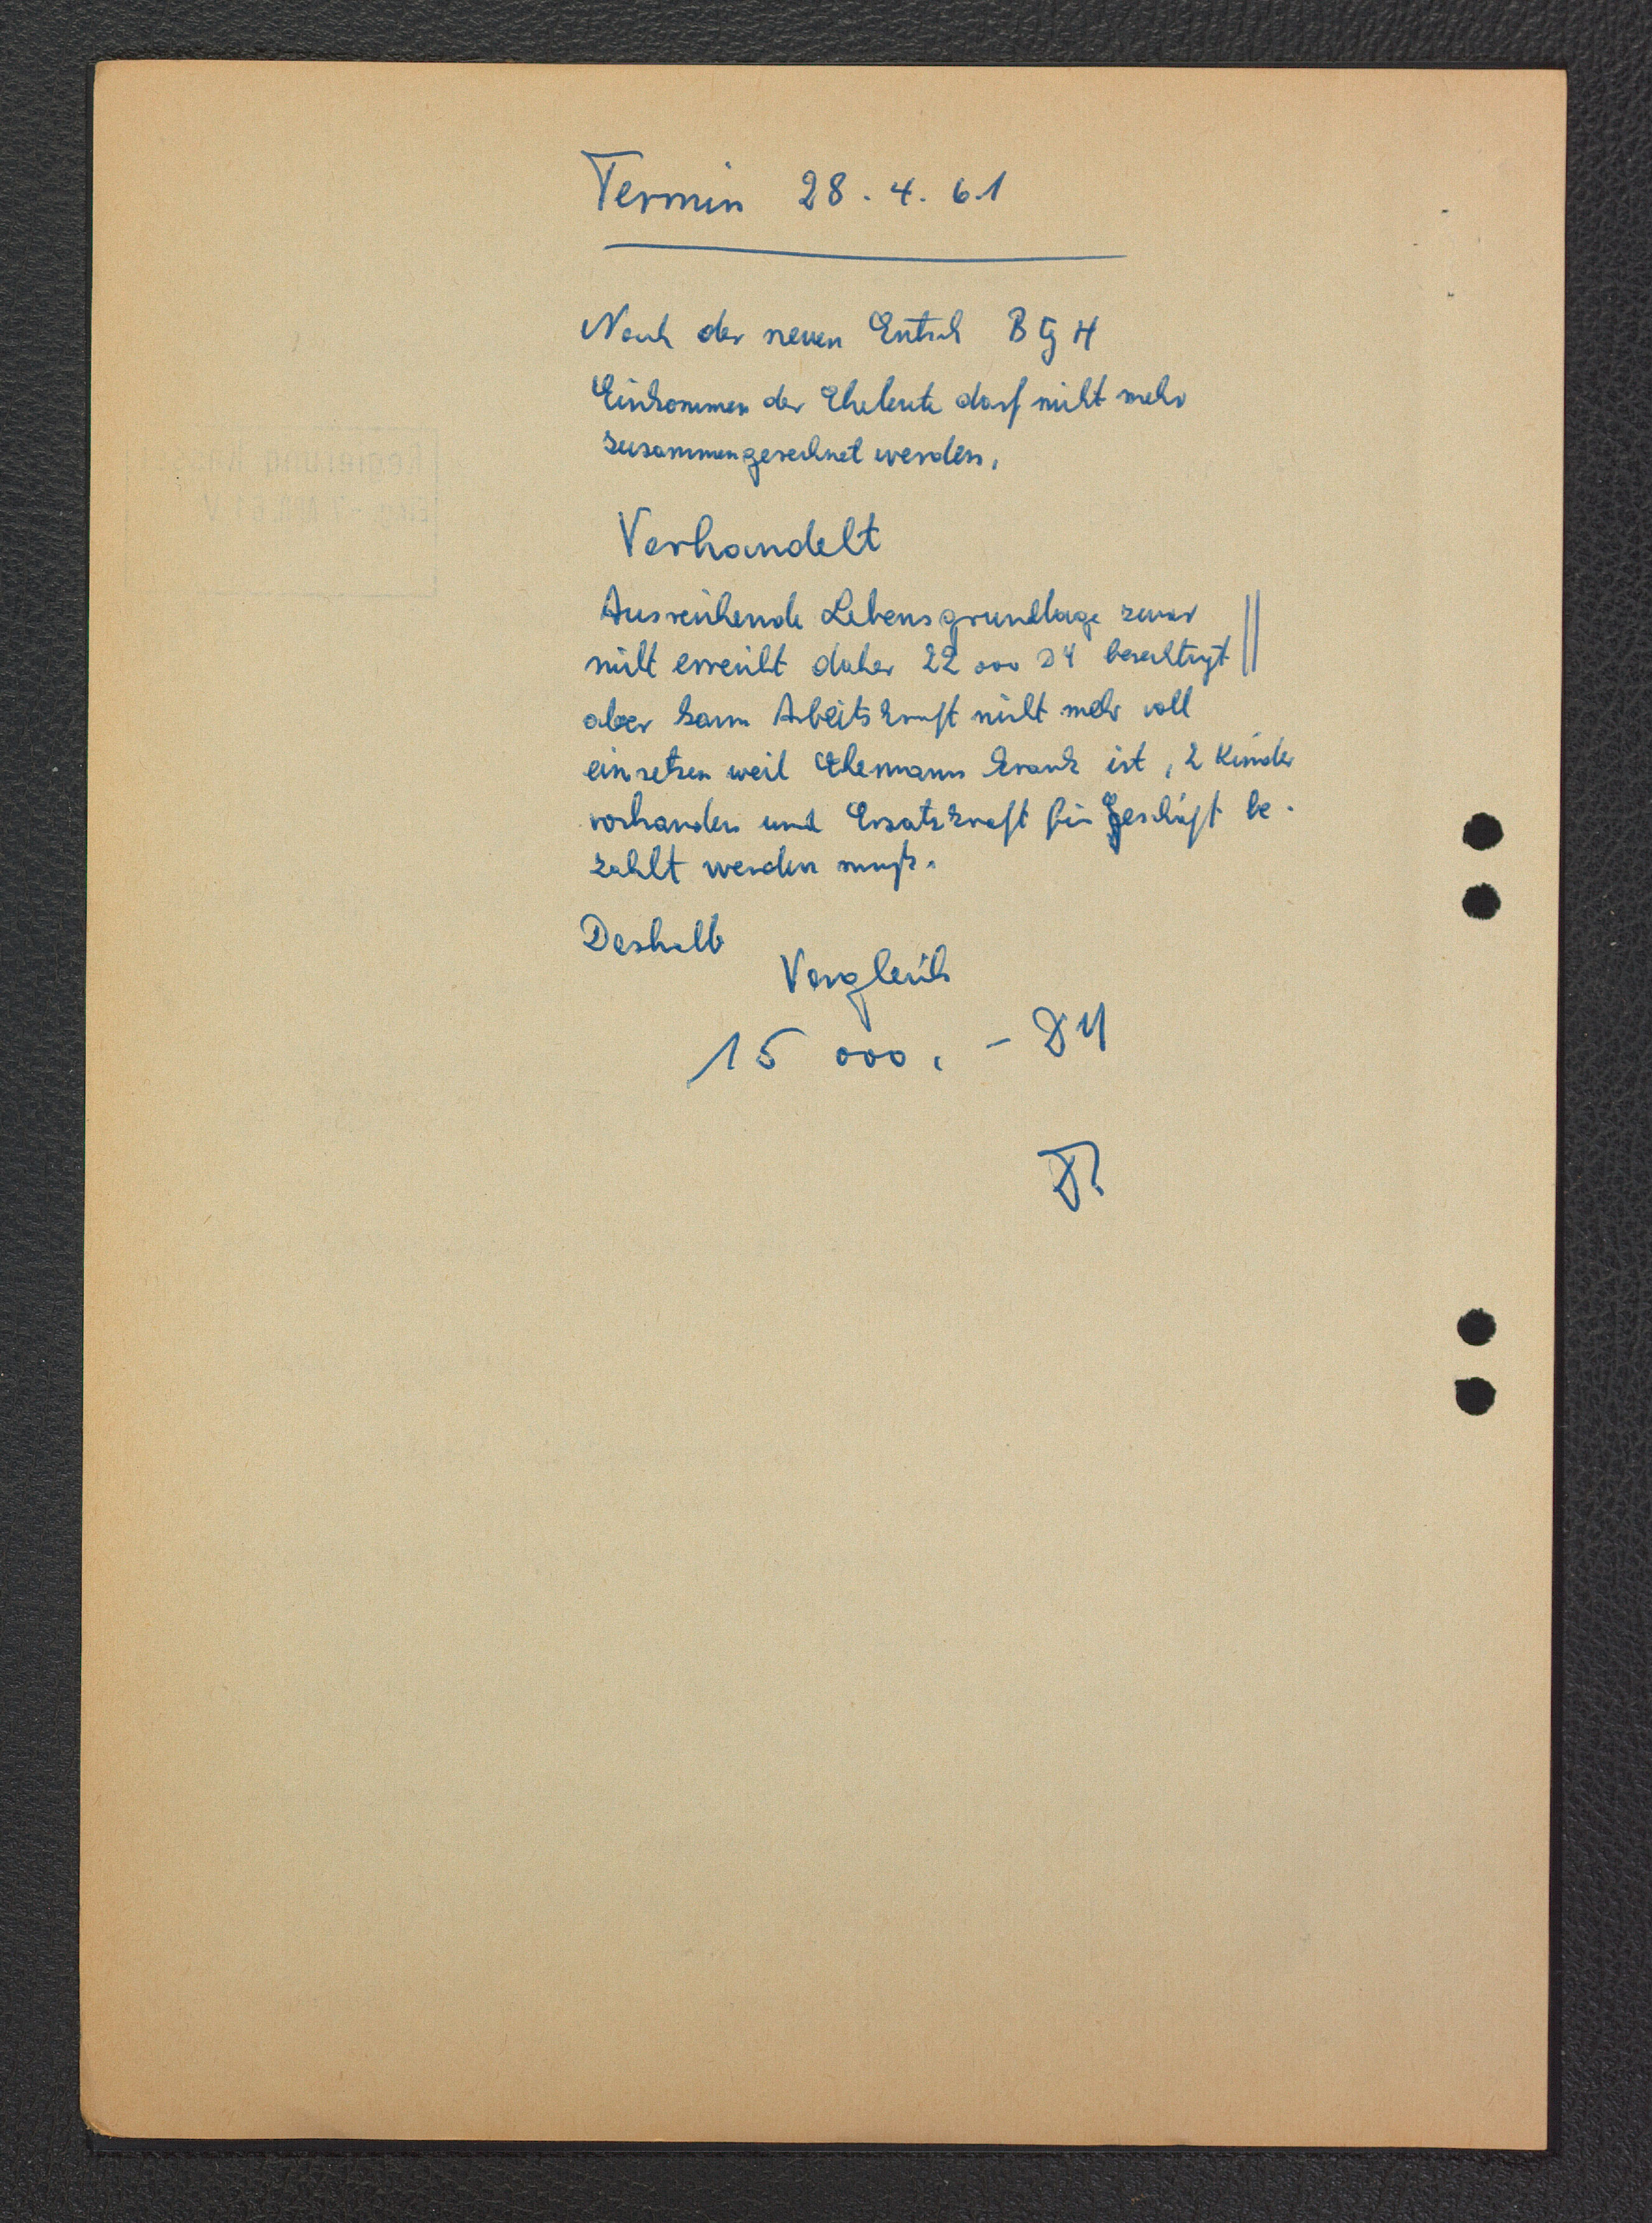 Termin 28.4.61
Nach der neuen Entsch BGH
Einkommen der Eheleute darf nicht mehr
zusammengerechnet werden.
Verhandelt
Ausreichende Lebensgrundlage zwar
nicht erreicht daher 22 000 DM berechtigt
aber kann Arbeitskraft nicht mehr voll
einsetzen weil Ehemann krank ist, 2 Kinder
vorhanden und Ersatzkraft für Geschäft be-
zahlt werden muß.
Deshalb
Vergleich
15 000.- DM